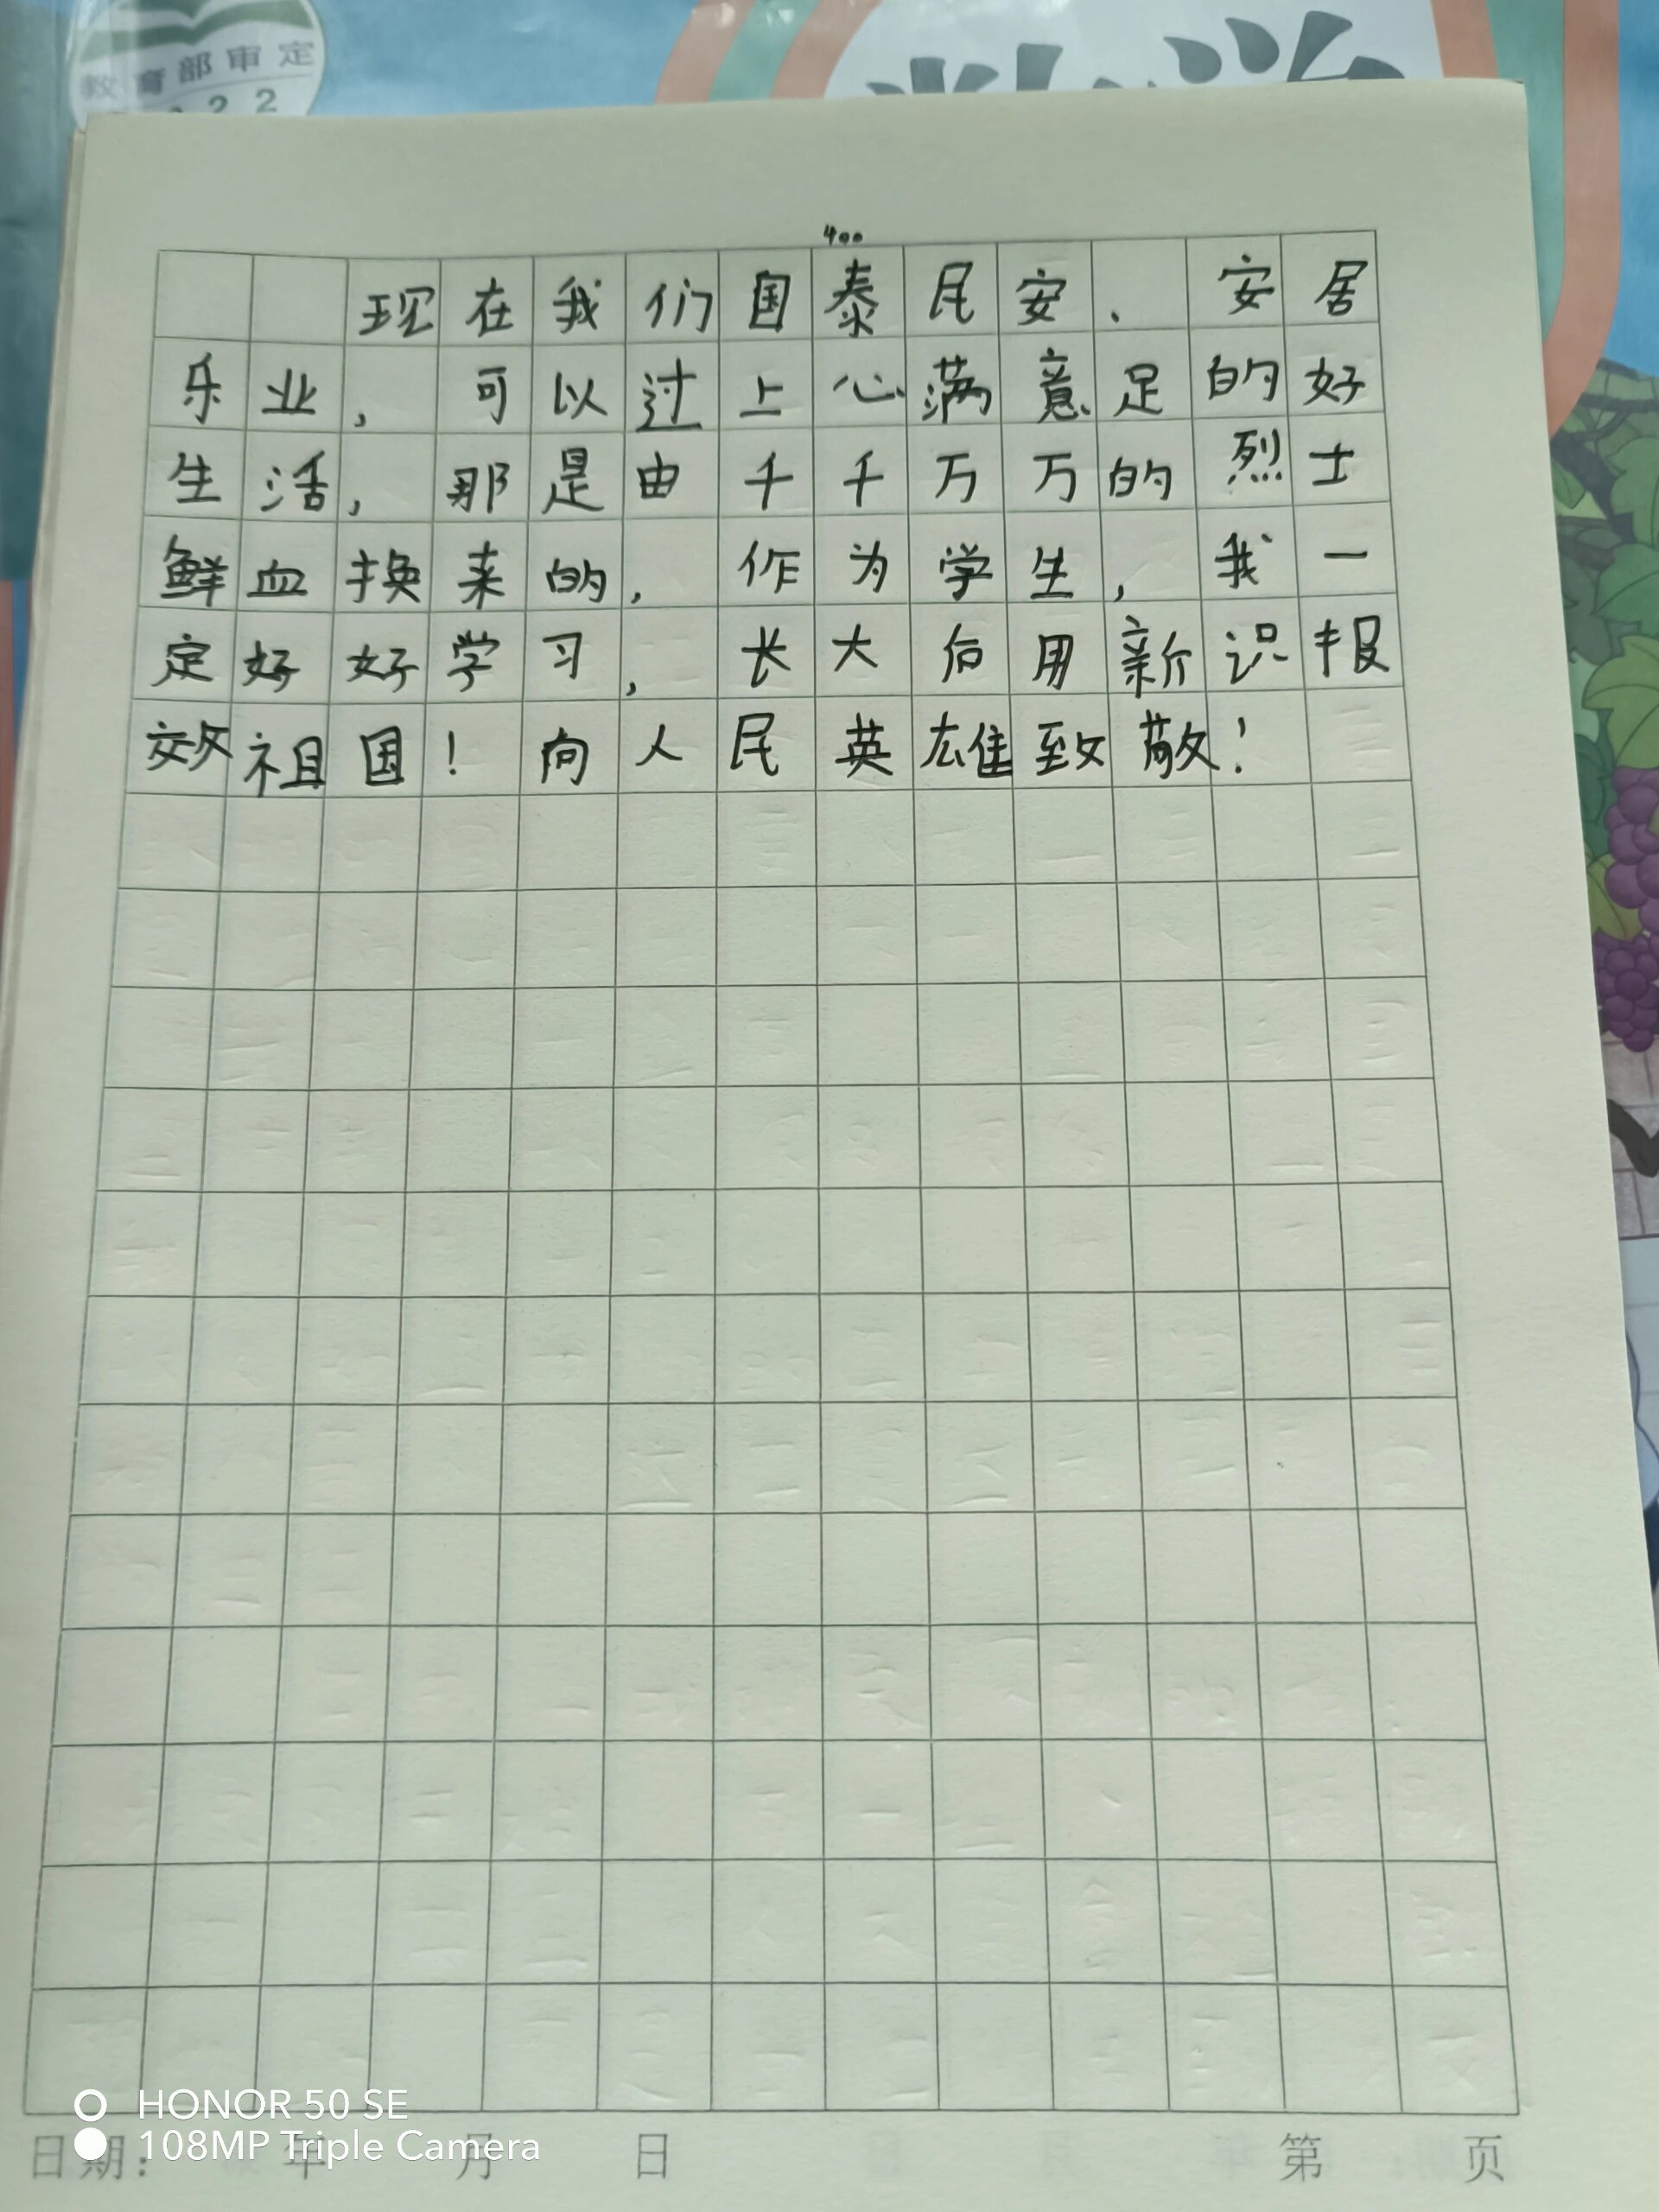 教育部审定
2022
400
现在我们国泰民安、安居
乐业，可以过上心满意足的好
生活，那是由千千万万的烈士
鲜血换来的，作为学生，我一
定好好学习，长大后用新识报
效祖国！向人民英雄致敬！
HONOR 50 SE
108MP Triple Camera
日期： 年 月 日 第 页